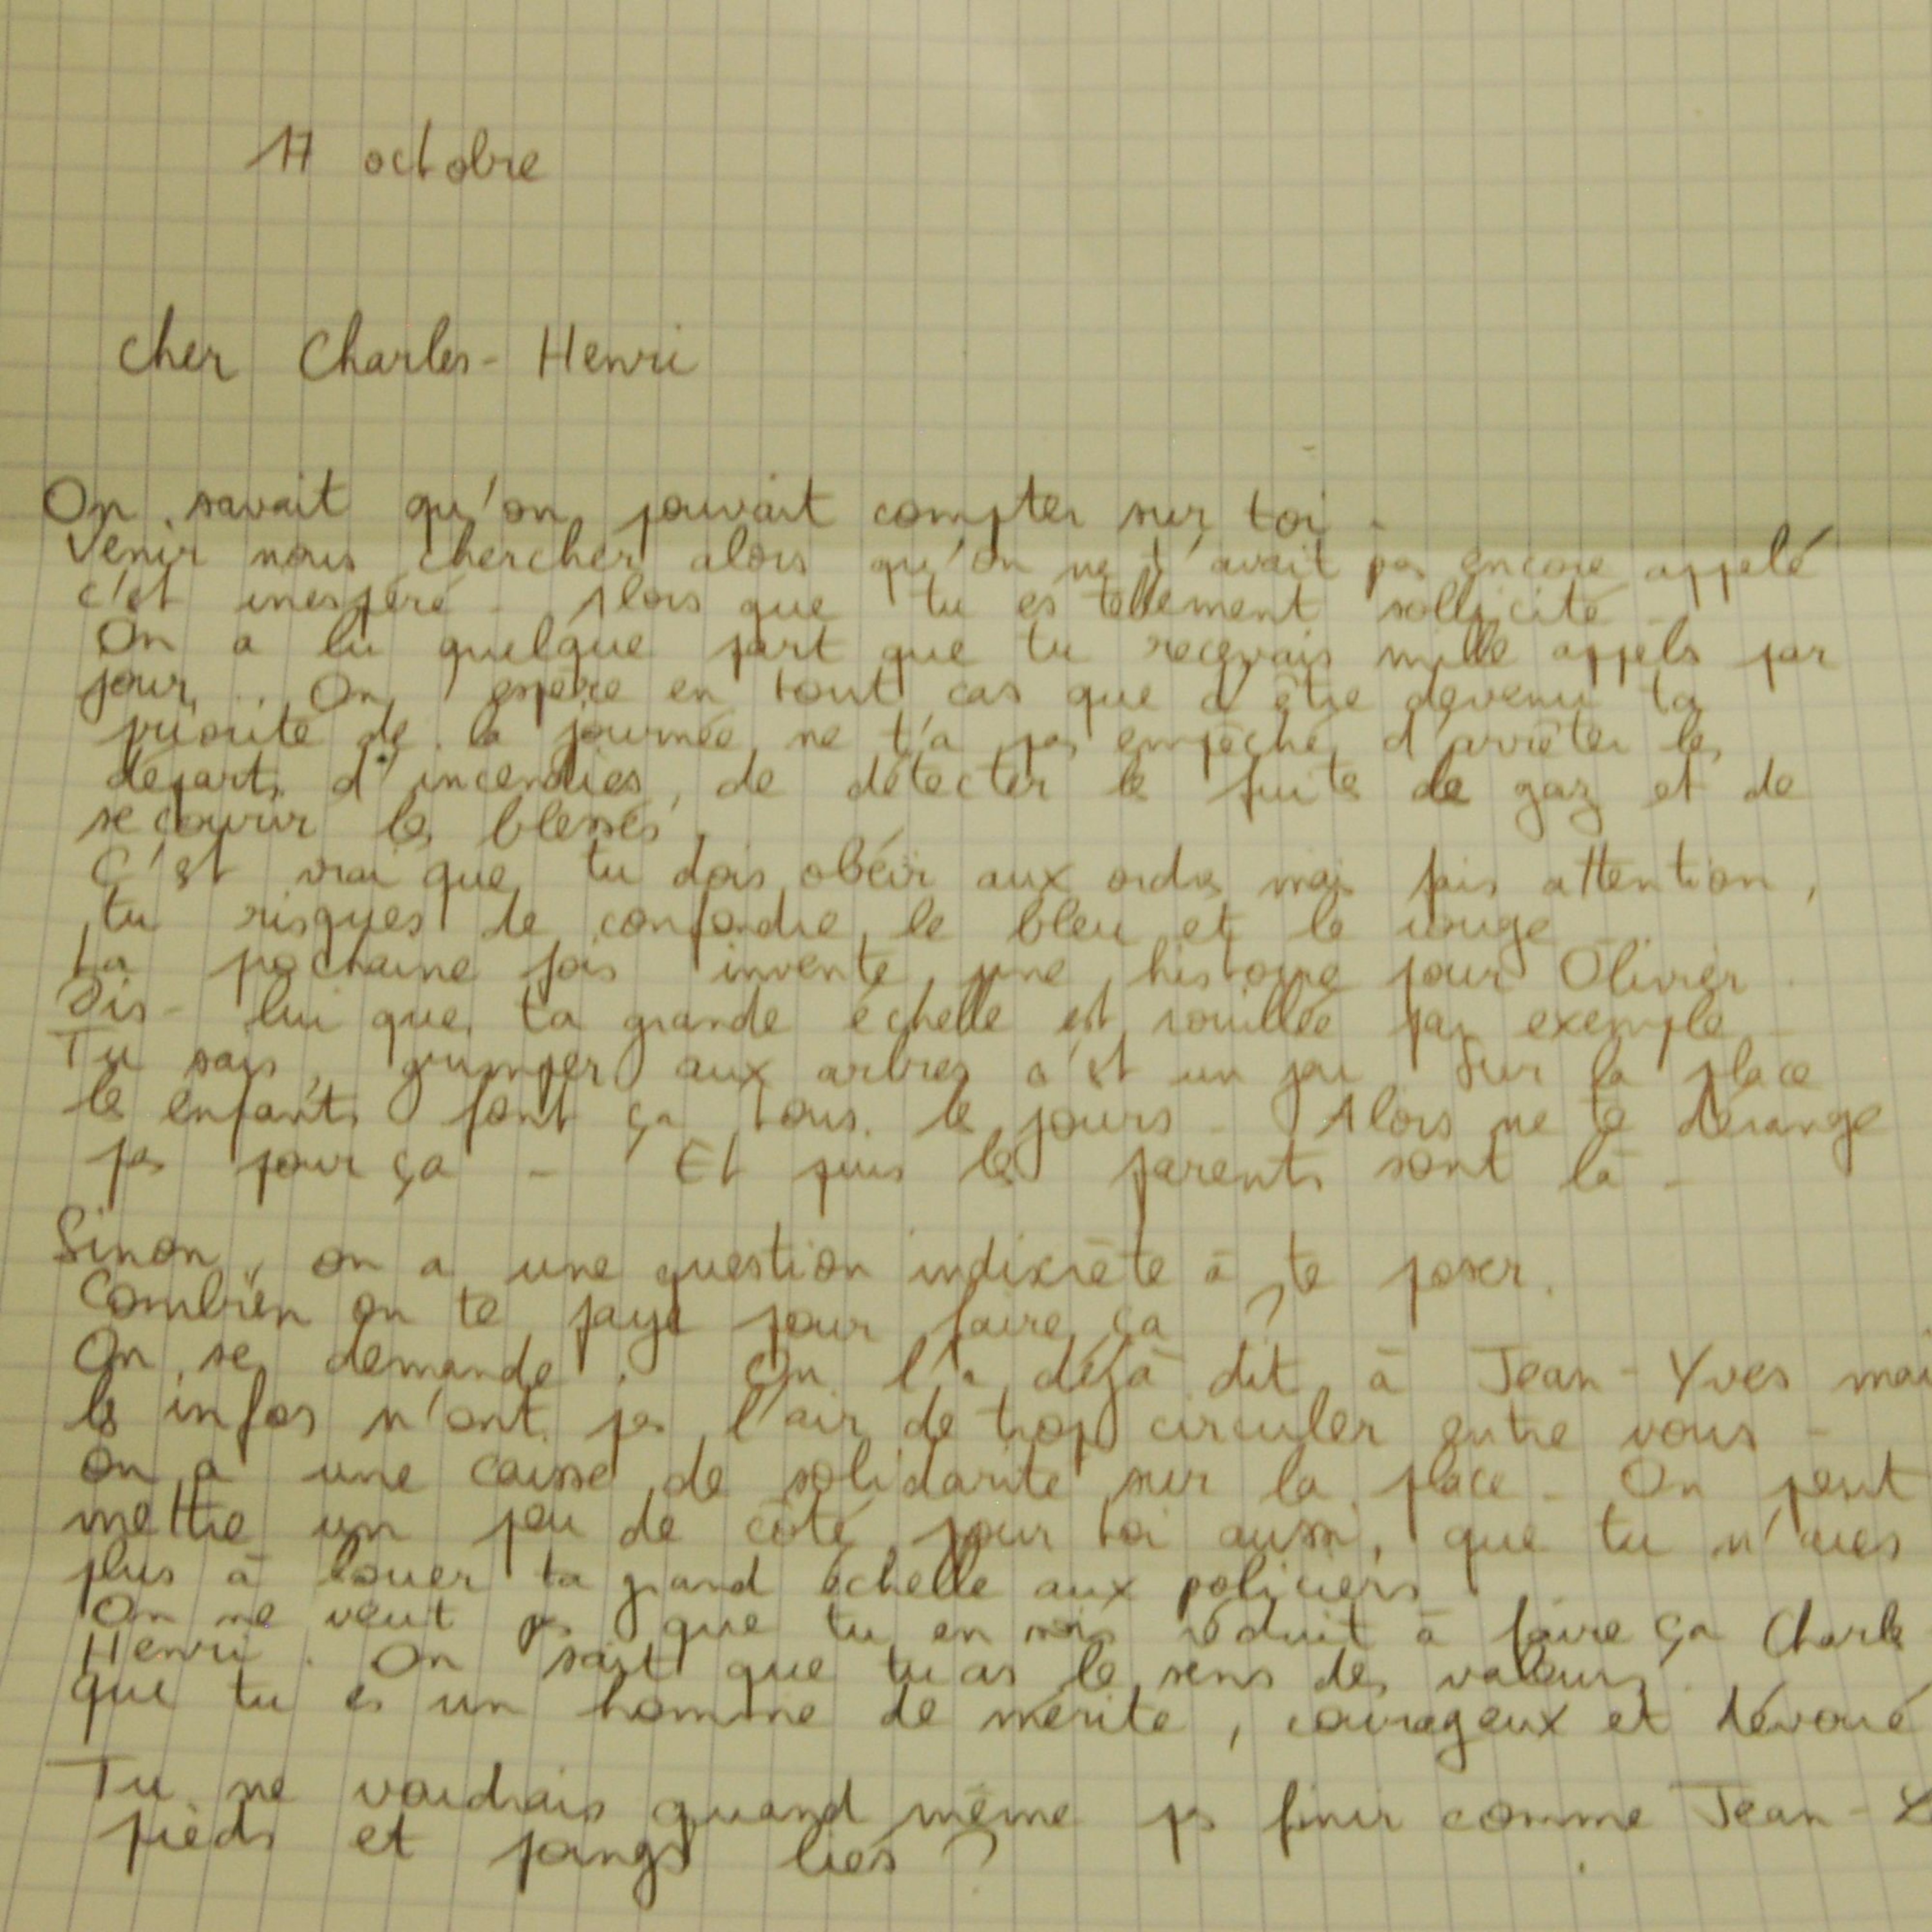 17 octobre
Cher Charles-Henri
On savait qu'on pouvait compter sur toi.
Venir nous chercher alors qu'on ne t'avait pas encore appelé
c'est inespéré. Alors que tu es tellement sollicité.
On a lu quelque part que tu recevais mille appels par
jour... On espère en tout cas que d'être devenu ta
priorité de la journée ne t'a pas empêché d'arrêter les
départs d'incendies, de détecter le fuites de gaz et de
secourir les blessés.
C'est vrai que tu dois obéir aux ordres mais fais attention,
tu risques de confondre le bleu et le rouge.
La prochaine fois invente une histoire pour Olivier.
Dis-lui que ta grande échelle est rouillée par exemple.
Tu sais, grimper aux arbres c'est un jeu. Sur la place
les enfants font ça tous les jours. Alors ne te dérange
pas pour ça. Et puis les parents sont là.
Sinon, on a une question indiscrète à te poser.
Combien on te paye pour faire ça ?
On se demande. On l'a déjà dit à Jean-Yves mai
les infos n'ont pas l'air de trop circuler entre vous.
On a une caisse de solidarité sur la place. On peut
mettre un peu de côté pour toi aussi, que tu n'aies
plus à louer ta grand échelle aux policiers.
On ne veut pas que tu en sois réduit à faire ça Charles
Henri. On sait que tu as le sens des valeurs.
que tu es un homme de mérite, courageux et dévoué
Tu ne voudrais quand même pas finir comme Jean-Y
pieds et poings liés ?